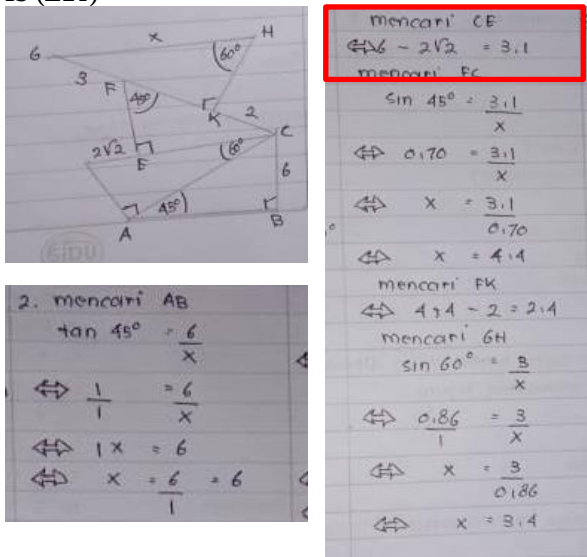 G
x
H
60°
3
F
45°
K
2
C
2√2
E
60°
6
45°
A
B
SIDU
2. mencari AB
tan 45° = 6
x
⇔ 1 = 6
1 x
⇔ 1x = 6
⇔ x = 6 = 6
1
mencari CE
⇔ 6 - 2√2 = 3.1
mencari FC
sin 45° = 3.1
x
⇔ 0.70 = 3.1
x
⇔ x = 3.1
0.70
⇔ x = 4.4
mencari FK
⇔ 4,4 - 2 = 2.4
mencari GH
sin 60° = 3
x
⇔ 0.86 = 3
1 x
⇔ x = 3
0.86
⇔ x = 3.4